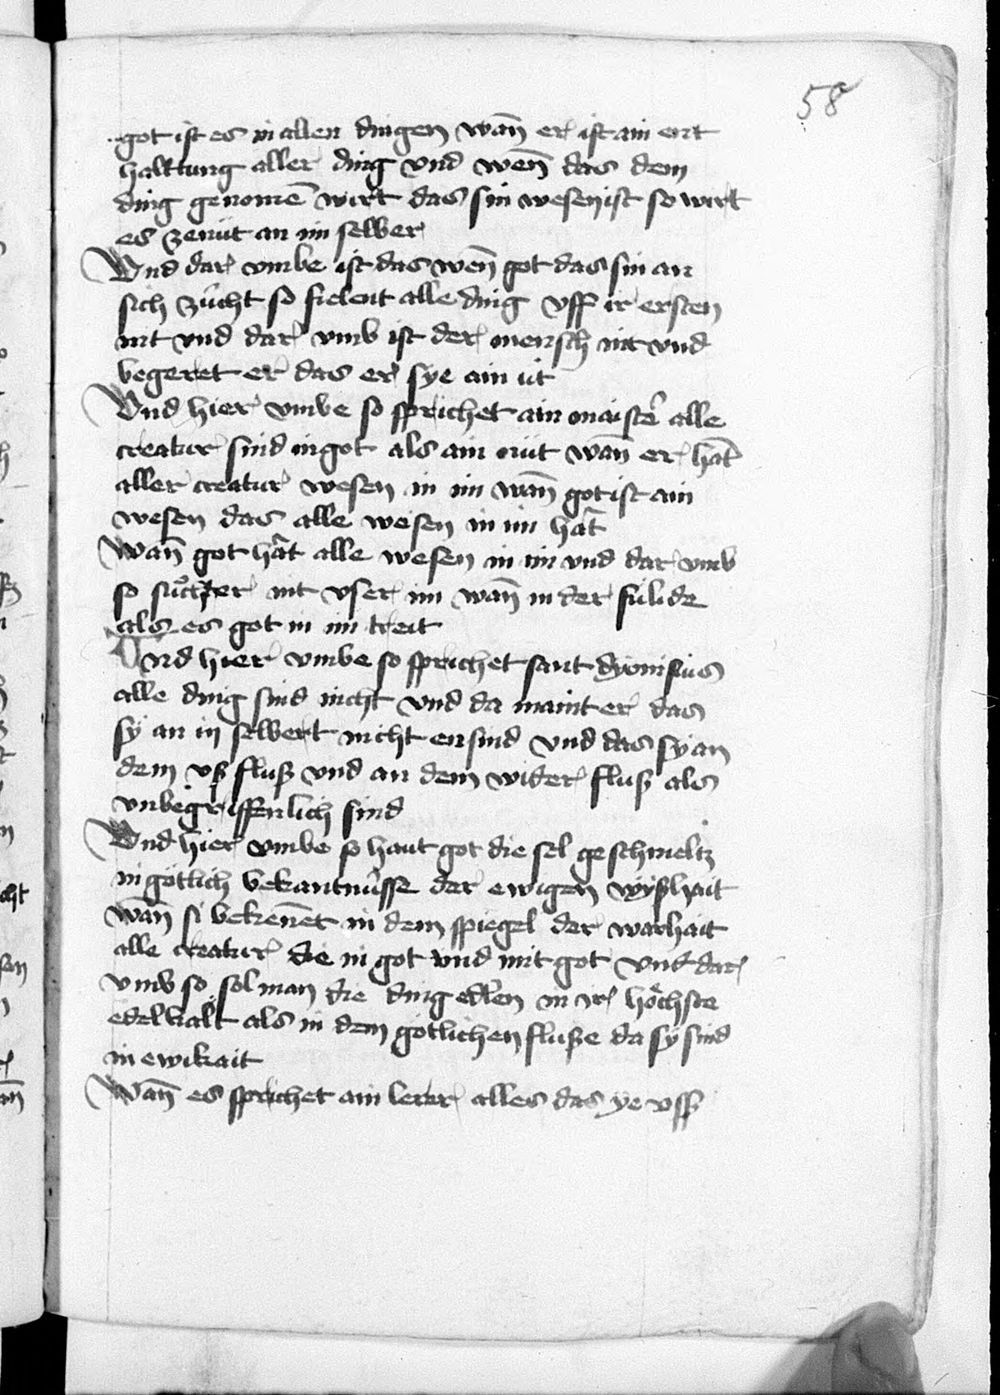 58
got ist es in allen dingen wan̄ er ist ain ent
halttung aller ding vnd wen̄ das dem
ding genomē wirt das sin wesen ist so wirt
es ze nüt an im selber
Vnd dar vmbe ist das wen̄ got das sin an
sich zúcht so fielent alle ding vff ir ersten
nit vnd dar vmb ist der mensch nit vnd
begeret er das er sye ain út
Vnd hier vmbe so sprichet ain maistē alle
creatur sind in got als ain nüt wan̄ er hat
aller creatur wesen in im wan̄ got ist ain
wesen das alle wesen in im hât
wan̄ got hât alle wesen in im vnd dar vmb
so er nit vser im wan̄ in der
als es got in im treit
Vnd hier vmbe so sprichet sant dyonisius
alle ding sind nicht vnd da maint er das
sy an in selbert nicht ensind vnd das sy an
dem vß fluß vnd an dem wider fluß als
vnbegriffenlich sind
Vnd hier vmbe so haut got die sel geschmeltz
in götlich bekantnússe der ewigen wyßhait
wan̄ si bekēnet in dem spiegel der warhait
alle creatur die in got vnd mit got vnd dar
vmb so sol man die ding edlen in ir höchste
edelkait als in dem götlichen fluße da sy sind
in ewikait
Wan̄ es sprichet ain lerer alles das ye vff